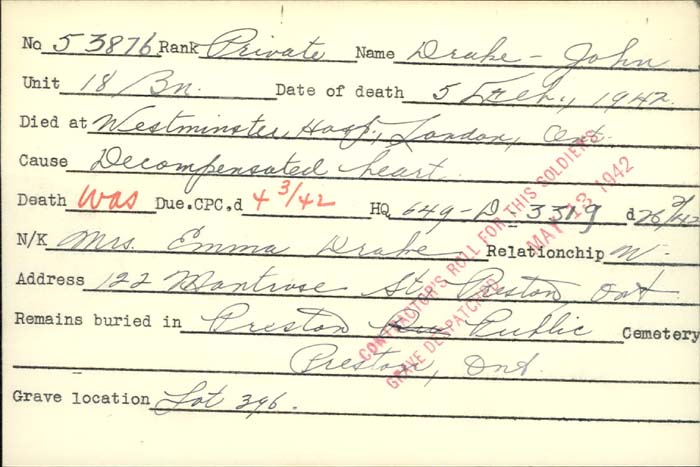 No 53876 Rank Private Name Drake - John
Unit 18/Bn. Date of death 5 Feb., 1942.
Died at Westminster Hosp., London, Ont.
Cause Decompensated heart.
Death was Due.CPC,d 4 3/42 HQ 649-D-3319 d 26 2/42
N/K Mrs. Emma Drake Relationship W.
Address 122 Montrose St. Preston, Ont
Remains buried in Preston Public Cemetery
Preston, Ont.
Grave location Lot 396.
CONTRACTOR'S ROLL FOR THIS SOLDIER'S
GRAVE DESPATCHED MAY 13 1942